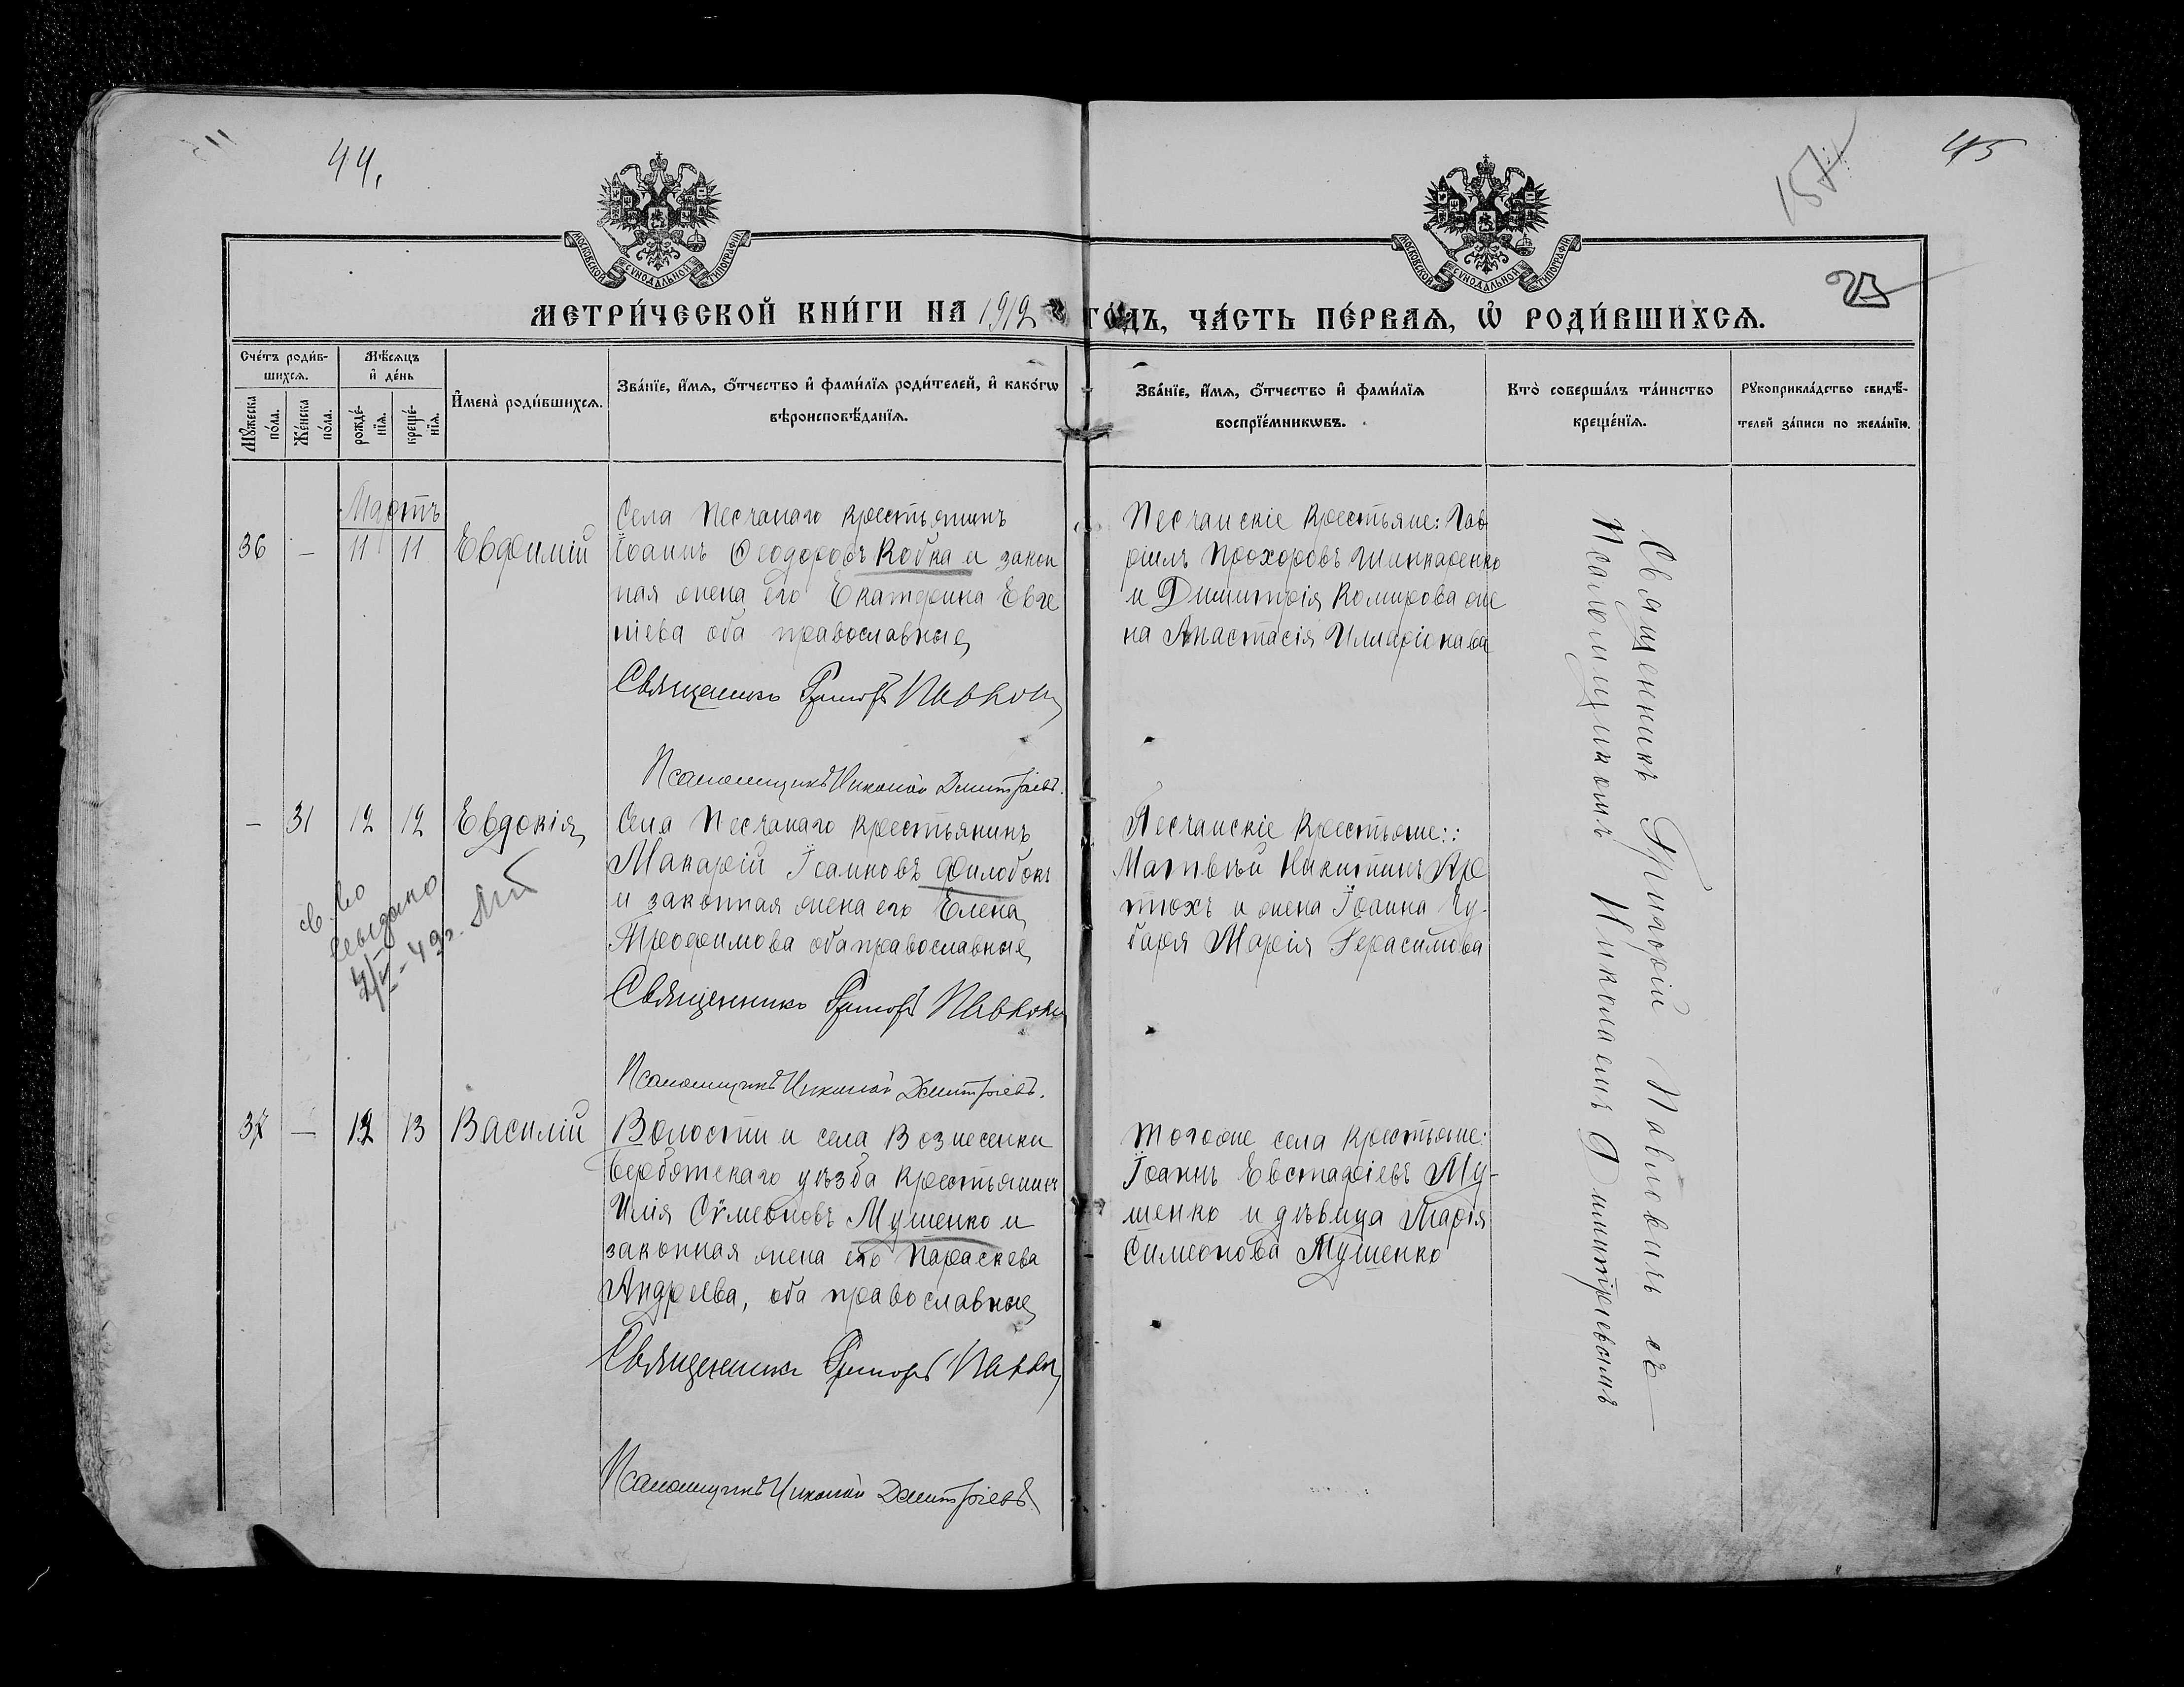 44.
45
157
23
МОСКОВСКОЙ СѴНОДАЛЬНОЙ ТИПОГРАФІИ
МОСКОВСКОЙ СѴНОДАЛЬНОЙ ТИПОГРАФІИ
МЕТРИ́ЧЕСКОЙ КНИ́ГИ НА 1912 ГО́ДЪ, ЧА́СТЬ ПЕ́РВАѦ, Ѡ҆ РОДИ́ВШИХСѦ.
Сче́тъ роди́в-
шихсѧ.
Мꙋ́жеска
по́ла.
Же́нска
по́ла.
Мѣ́сѧцъ
и҆ де́нь
рожде́-
нїѧ.
креще́-
нїѧ.
И҆мена̀ роди́вшихсѧ.
Зва́нїе, и҆́мѧ, ѻ҆́тчество и҆ фами́лїѧ роди́телей, и҆ како́гѡ
вѣроисповѣ́данїѧ.
Зва́нїе, и҆́мѧ, ѻ҆́тчество и҆ фами́лїѧ
воспрїе́мникѡвъ.
Кто̀ соверша́лъ та́инство
креще́нїѧ.
Рꙋкоприкла́дство свидѣ́-
телей за́писи по жела́нїю.
Мартъ
36 — 11 11 Евфимій
Села Песчанаго крестьянинъ
Іоаннъ Ѳеодоровъ Кобка и закон
ная жена его Екатерина Евге
ніева оба православные
Священникъ Григорій Павлович
Псаломщикъ Николай Димитріевъ.
Песчанскіе крестьяне: Гав
ріилъ Прохоровъ Шинкаренко
и Димитрія Комирова же
на Анастасія Илларіонова
— 31 12 12 Евдокія
Села Песчанаго крестьянинъ
Макарій Іоанновъ Филобокъ
и законная жена его Елена
Трофимова оба православные
Священникъ Григорій Павлович
Псаломщикъ Николай Димитріевъ.
Песчанскіе крестьяне:
Матвѣй Никитинъ Ар
тюхъ и жена Іоанна Чу-
баря Марія Герасимова
св-во
выдано
37 — 12 13 Василій
Волости и села Вознесенки
Бердянскаго уѣзда крестьянинъ
Илія Сѵмеоновъ Мушенко и
законная жена его Параскева
Андреева, оба православные
Священникъ Григорій Павлович
Псаломщикъ Николай Димитріевъ
Тогоже села крестьяне:
Іоаннъ Евстафіевъ Му-
шенко и дѣвица Марія
Симеонова Мушенко
Священникъ Григорій Павловичъ съ
Псаломщикомъ Николаемъ Димитріевымъ